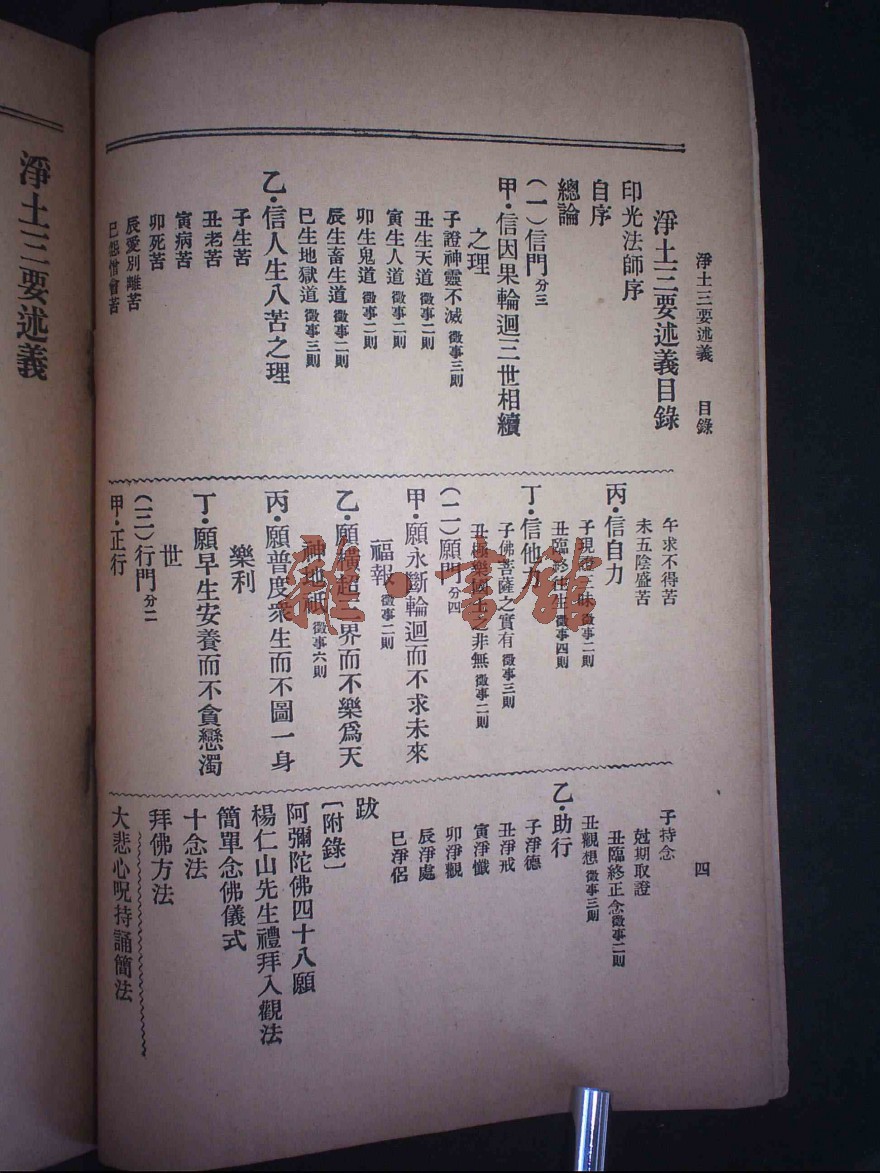 淨土三要述義　目錄
四
淨土三要述義目錄
印光法師序
自序
總論
(一)信門 分三
甲・信因果輪迴三世相續
之理
子證神靈不滅 徵事三則
丑生天道 徵事二則
寅生人道 徵事二則
卯生鬼道 徵事二則
辰生畜生道 徵事二則
巳生地獄道 徵事三則
乙・信人生八苦之理
子生苦
丑老苦
寅病苦
卯死苦
辰愛別離苦
巳怨憎會苦
午求不得苦
未五陰盛苦
丙・信自力
子現證三昧 徵事二則
丑臨終往生 徵事四則
丁・信他力
子佛菩薩之實有 徵事三則
丑極樂國土之非無 徵事二則
(二)願門 分四
甲・願永斷輪迴而不求未來
福報 徵事二則
乙・願橫超三界而不樂爲天
神地祇 徵事六則
丙・願普度衆生而不圖一身
樂利
丁・願早生安養而不貪戀濁
世
(三)行門 分二
甲・正行
子持念
尅期取證
丑臨終正念 徵事二則
丑觀想 徵事三則
乙・助行
子淨德
丑淨戒
寅淨懺
卯淨觀
辰淨處
巳淨侶
跋
[附錄]
阿彌陀佛四十八願
楊仁山先生禮拜入觀法
簡單念佛儀式
十念法
拜佛方法
大悲心呪持誦簡法
淨土三要述義
雜・書館